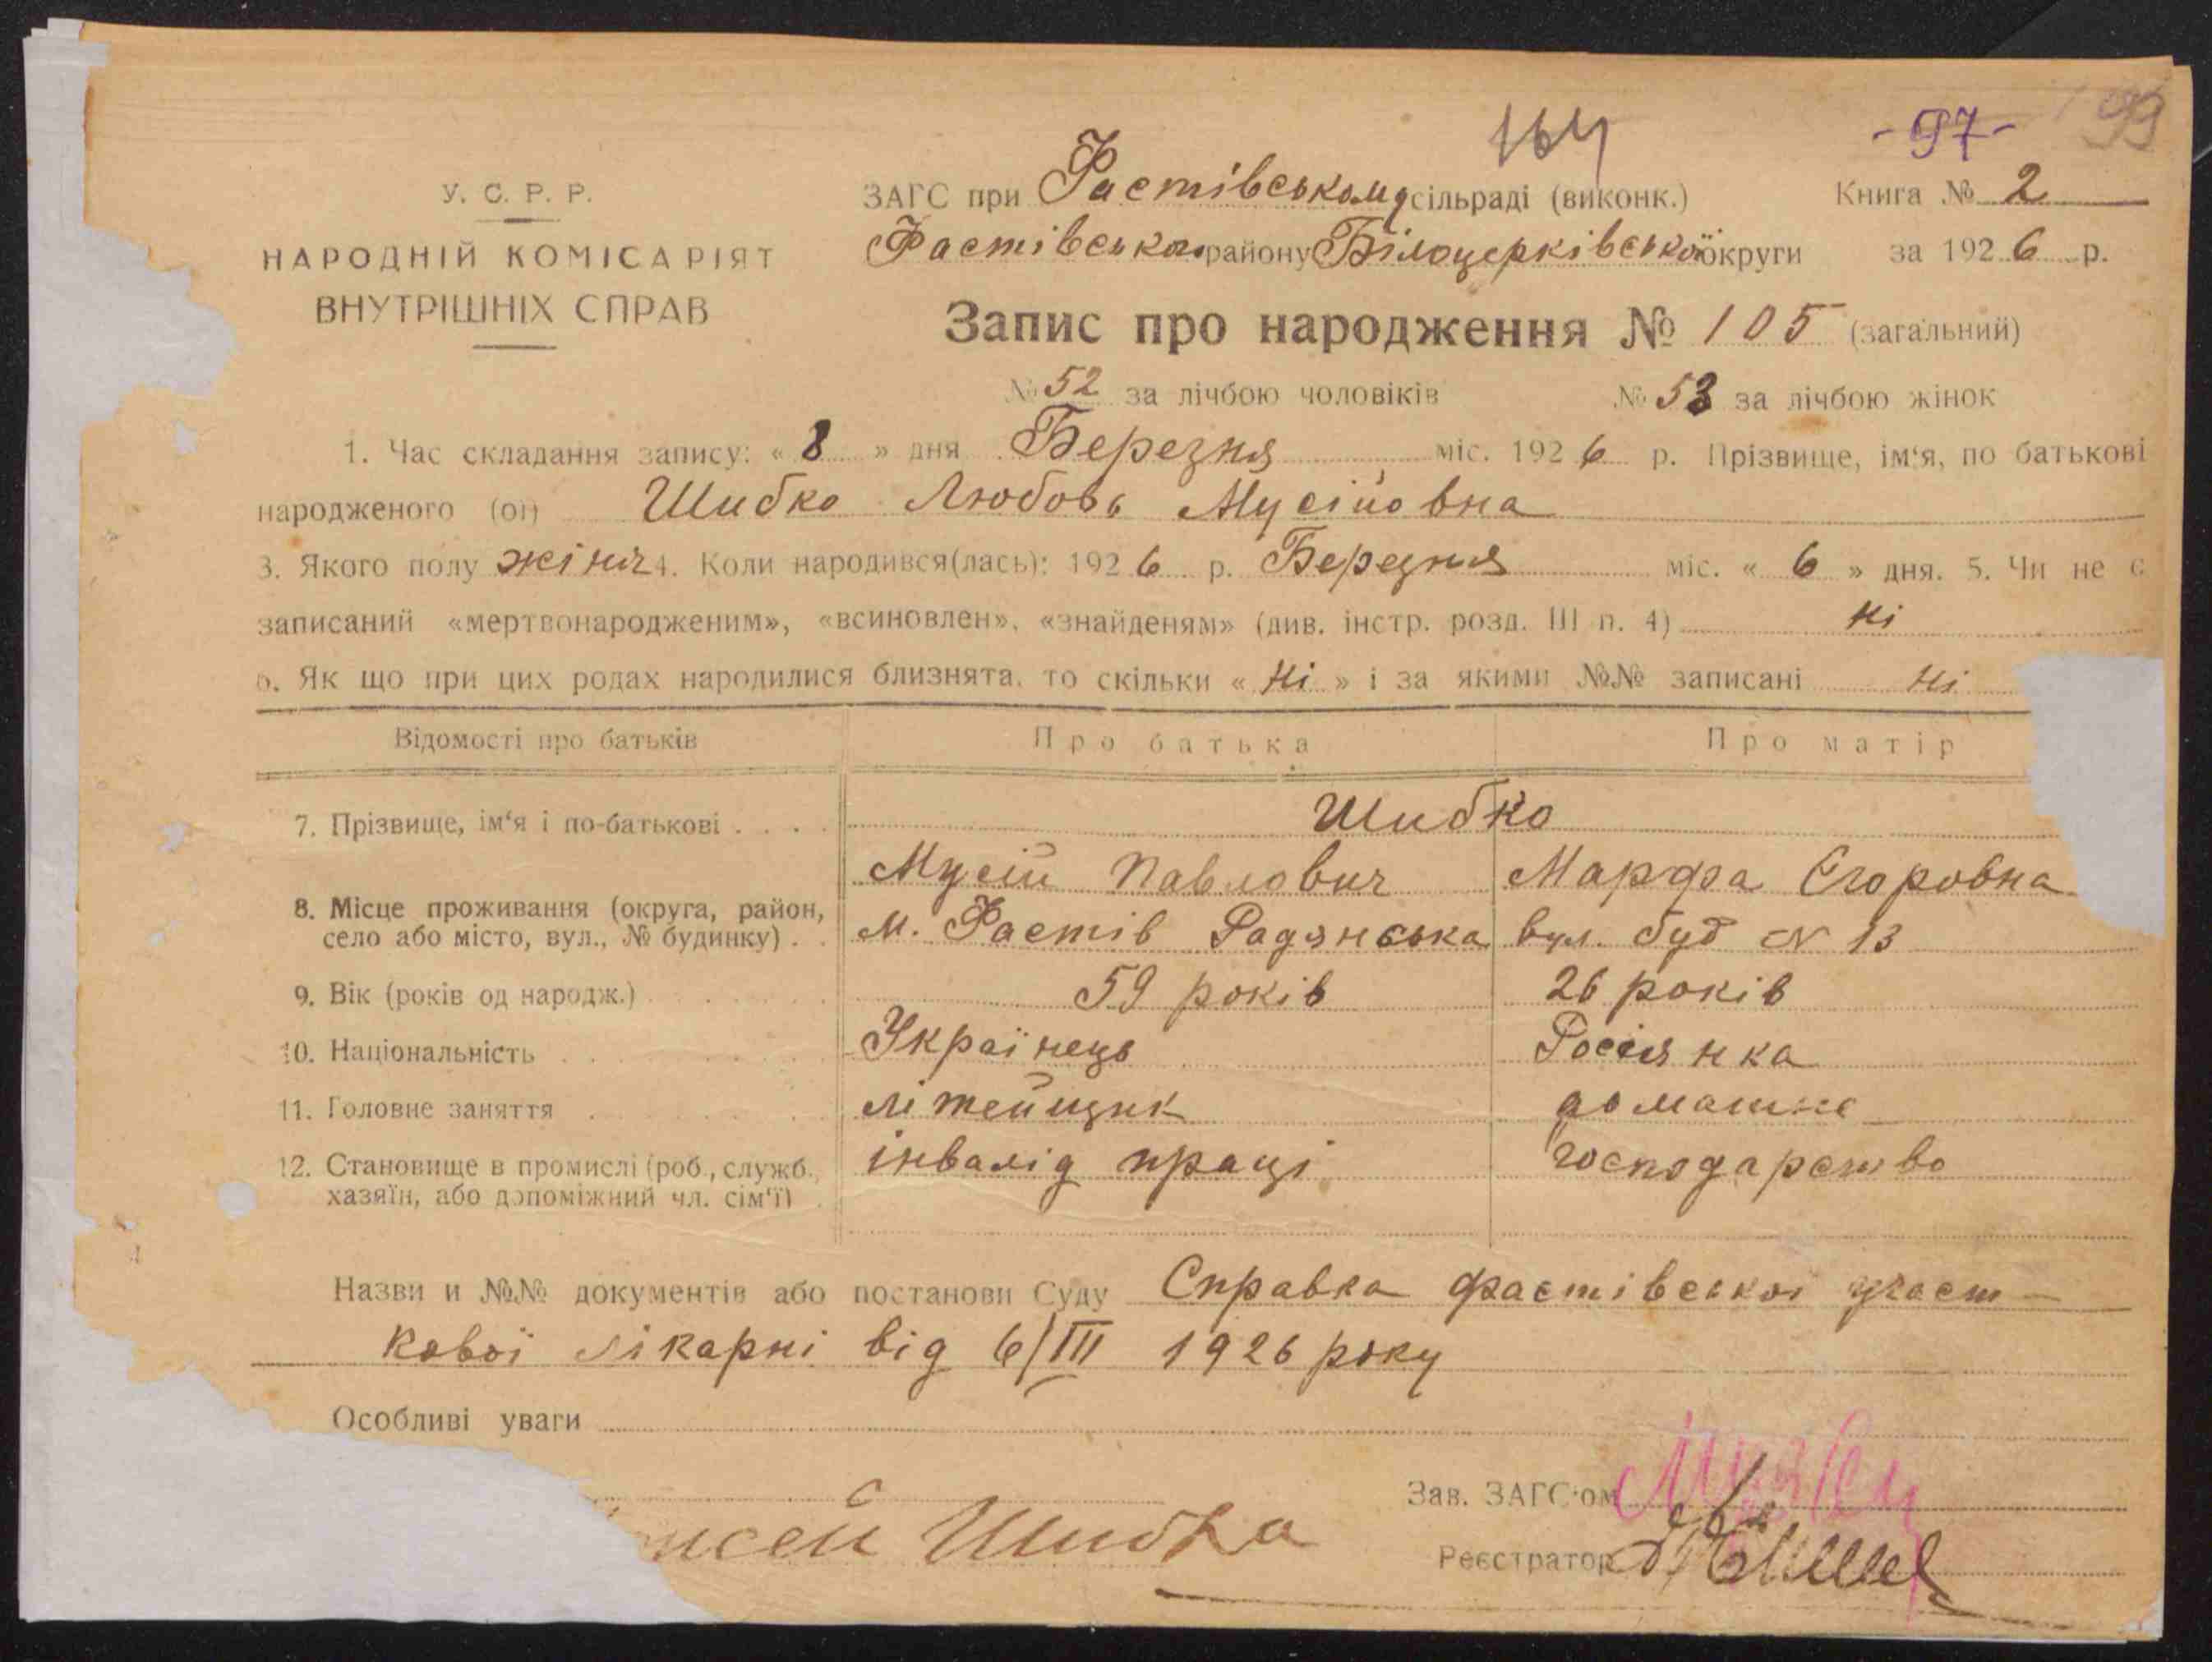 164
-97-
99
У. С. Р. Р.
НАРОДНІЙ КОМІСАРІЯТ
ВНУТРІШНІХ СПРАВ
ЗАГС при Фастівському сільраді (виконк.) Книга № 2
Фастівського району Білоцерківської округи за 1926 р.
Запис про народження № 105 (загальний)
№ 52 за лічбою чоловіків № 53 за лічбою жінок
1. Час складання запису: « 8 » дня Березня міс. 1926 р. Прізвище, ім‘я, по батькові
народженого (ої) Шибко Любовь Мусіиовна
3. Якого полу жіноч 4. Коли народився(лась): 1926 р. Березня міс. « 6 » дня. 5. Чи не є
записаний «мертвонародженим», «всиновлен», «знайденям» (див. інстр. розд. III п. 4) Ні
6. Як що при цих родах народилися близнята, то скільки « Ні » і за якими №№ записані Ні
Відомості про батьків Про батька Про матір
7. Прізвище, ім‘я і по-батькові . . . . Шибко
Мусій Павлович Марфа Єгоровна
8. Місце проживання (округа, район,
село або місто, вул., № будинку) . . м. Фастів Радянська вул. буд № 13
9. Вік (років од народж.) 59 років 26 років
10. Національність Українець Росіянка
11. Головне заняття літейщик домашнє
12. Становище в промислі (роб., служб., інвалід праці господарство
хазяїн, або допоміжний чл. сім‘ї)
Назви и №№ документів або постанови Суду Справка фастівської участ-
кової лікарні від 6/III 1926 року
Особливі уваги
Зав. ЗАГС‘ом
Шибка
Реєстратор